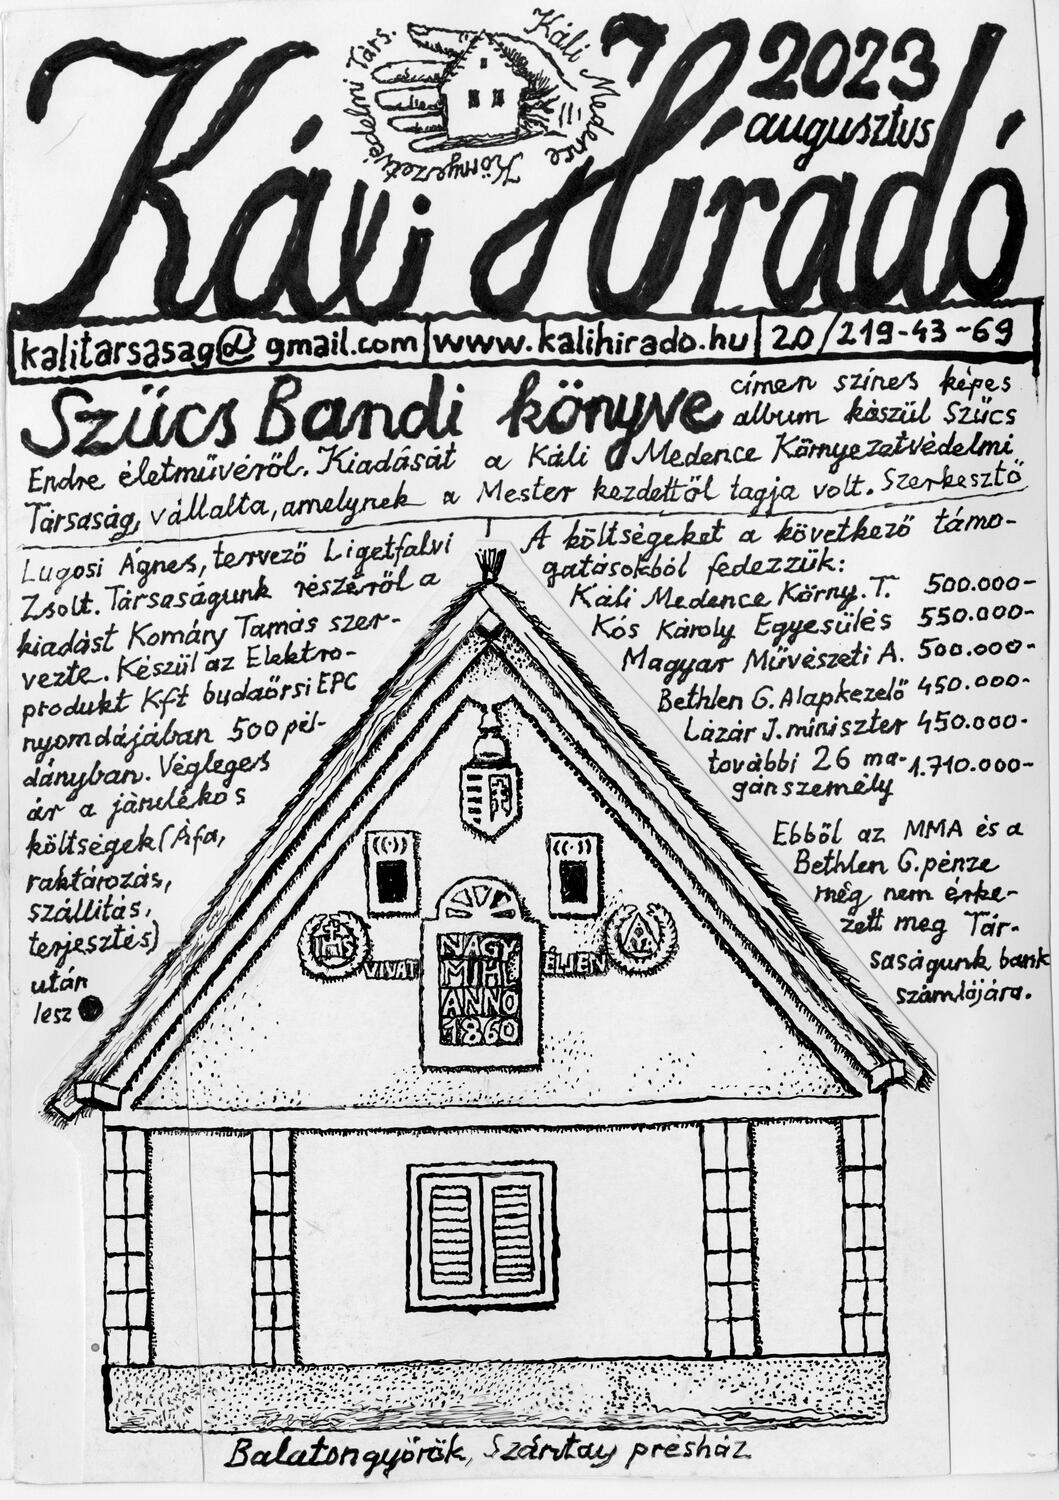 Káli Híradó
2023
augusztus
Káli Medence Környezetvédelmi Társ.
kalitarsasag@gmail.com | www.kalihirado.hu | 20/219-43-69
Szűcs Bandi könyve címen színes képes
album készül Szűcs
Endre életművéről. Kiadását a Káli Medence Környezetvédelmi
Társaság, vállalta, amelynek a Mester kezdettől tagja volt. Szerkesztő
Lugosi Ágnes, tervező Ligetfalvi
Zsolt. Társaságunk részéről a
kiadást Komáry Tamás szer-
vezte. Készül az Elektro-
produkt Kft budaörsi EPC
nyomdájában 500 pél-
dányban. Végleges
ár a járulékos
költségek (Áfa,
raktározás,
szállítás,
terjesztés)
után
lesz
A költségeket a következő támo-
gatásokból fedezzük:
Káli Medence Körny. T. 500.000-
Kós Károly Egyesülés 550.000-
Magyar Művészeti A. 500.000-
Bethlen G. Alapkezelő 450.000-
Lázár J. miniszter 450.000-
további 26 ma- 1.710.000-
gánszemély
Ebből az MMA és a
Bethlen G. pénze
még nem érke-
zett meg Tár-
saságunk bank
számlájára.
IHS
VIVAT
NAGY
MIHL
ANNO
1860
ÉLJEN
Balatongyörök, Szántay présház